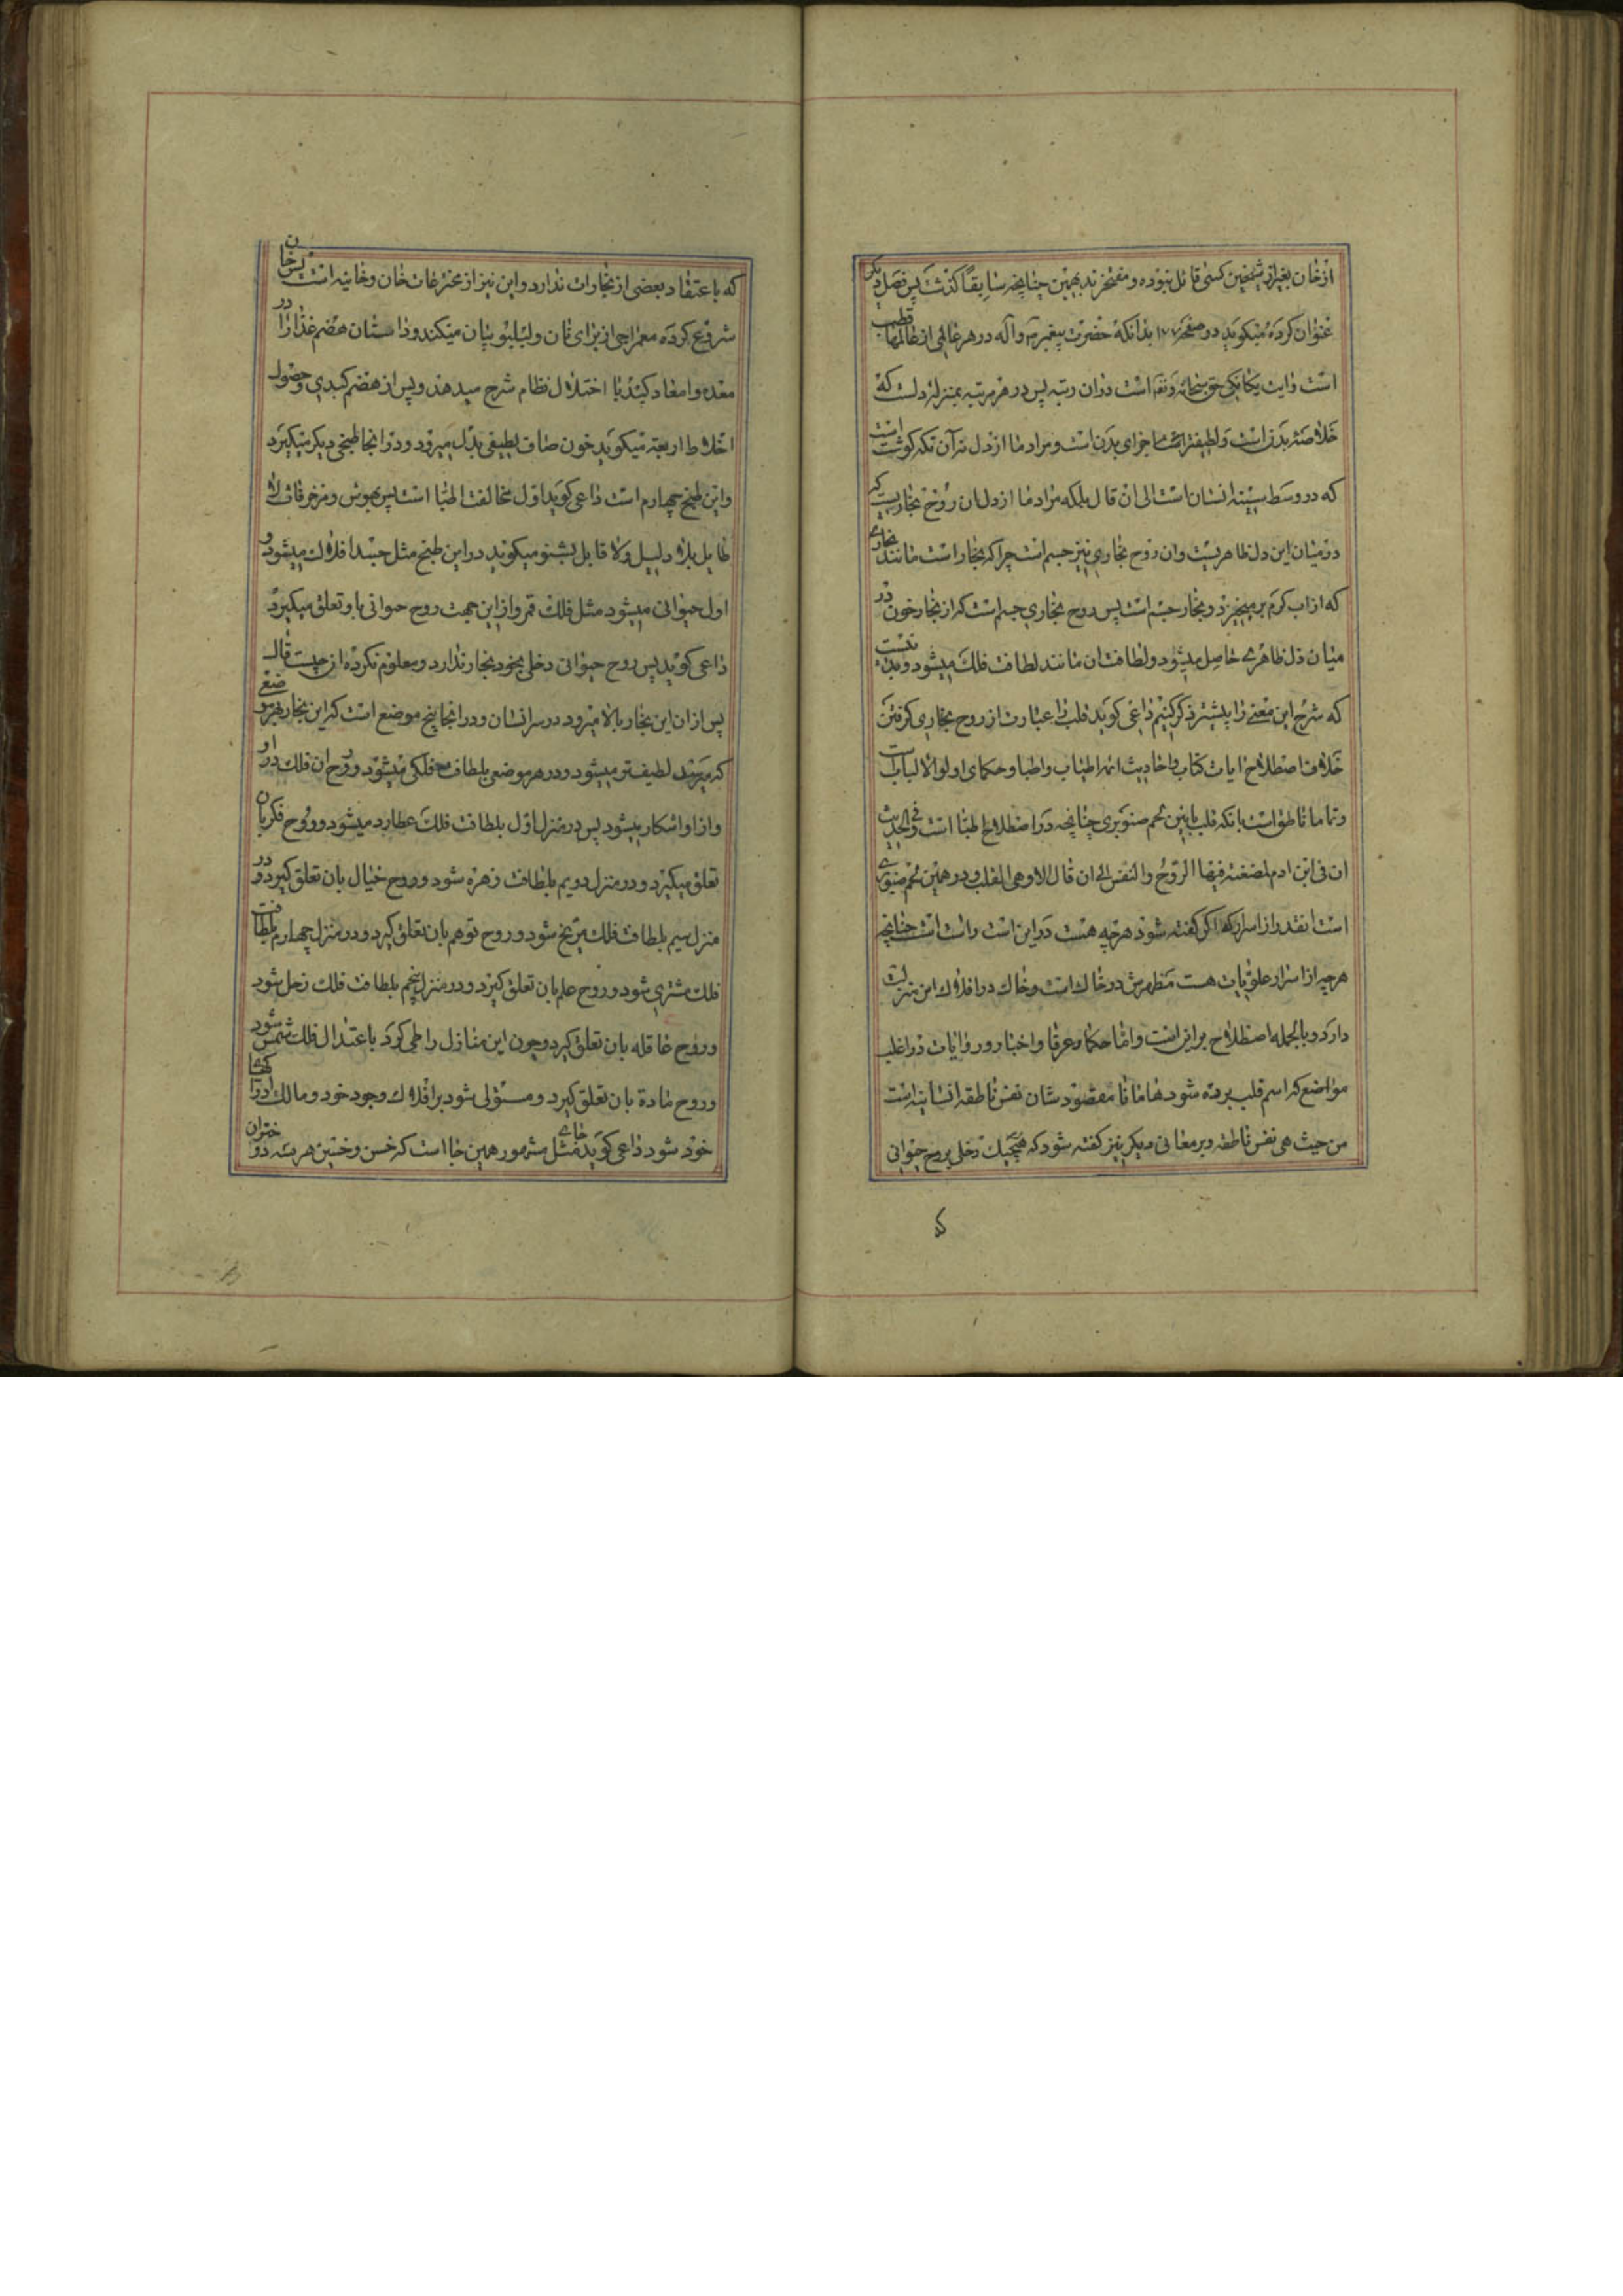 ازخان بغیر از شیخین کسی قائل نبوده و مفتخرند بهمین چنانچه سابقا کذشت پس فصل دیکر
عنوان کرده میکوید در صفحه ۱۷۷ بدانکه حضرت پیغمبر ص و آله در هر عالمی از عالمها قطب
است و ایت یکانکی حق سبحانه و تعا است دران رتبه پس در هر مرتبه بمنزله دلست که
خلاصه بدن است و لطیفترین اجزای بدن است و مراد ما از دل نه آن تکه کوشت است
که در وسط سینه انسان است الی ان قال بلکه مراد ما از دل ان روح بخاریست که
در میان این دل ظاهریست و ان روح بخاری نیز جسم است چرا که بخار است مانند بخاری
که از اب کرم برمیخیزد و بخار جسم است پس روح بخاری جسم است که از بخار خون در
میان دل ظاهری حاصل میشود و لطافت ان مانند لطافت فلک میشود و بد نیست
که شرح این معنی را پیشتر ذکر کنیم داعی کوید قلب را عبارت از روح بخاری کرفتن
خلاف اصطلاح ایات کتاب و احادیث ائمه اطیاب و اطبا و حکمای اولوالالباب است
و تماما ناطق است بانکه قلب باین لحم صنوبری چنانچه در اصطلاح اطبا است و فی الحدیث
ان فی ابن ادم لمضغة فیها الروح و النفس الی ان قال الا وهی القلب و در همین لحم صنوبری
است انقدر از اسرار که اکر کفته شود هرچه هست در این است راست است چنانچه
هرچه از اسرار علویات هست مظهرش در خاک است و خاک در افلاک این منزلت
دارد و بالجمله اصطلاح بر این است و اما حکما و عرفا و اخبار و روایات در اغلب
مواضع که اسم قلب برده شود همانا مقصودشان نفس ناطقه انسانیه است
من حیث هی نفس ناطقه و بر معانی دیکر نیز کفته شود که هیچیک دخلی بروح حیوانی
که باعتقاد بعضی از بخارات ندارد و این نیز از مخترعات خان و خانیه است پس خان
شروع کرده معراجی از برای نان و لبلبو بیان میکند و داستان هضم غذا را در
معده و امعاد کبد با اختلال نظام شرح میدهد و پس از هضم کبدی و حصول
اخلاط اربعه میکوید خون صاف لطیفی بدل میرود و در انجا طبخی دیکر میکیرد
و این طبخ چهارم است داعی کوید اول مخالفت اطبا است پس بهوش و مزخرفات لا
طایل بلا دلیل و لا قابل بشنو میکوید در این طبخ مثل جسد افلاک میشود و
اول حیوانی میشود مثل فلک قمر و از این جهت روح حیوانی باو تعلق میکیرد
داعی کوید پس روح حیوانی دخلی بخود بخار ندارد و معلوم نکرده از چیست قال
پس از ان این بخار بالا میرود در سر انسان و در انجا پنج موضع است که این بخار بهر موضعی
که میرسد لطیفتر میشود و در هر موضعی بلطافت فلکی میشود و روح ان فلک در او
و از او اشکار میشود پس در منزل اول بلطافت فلک عطارد میشود و روح فکر بان
تعلق میکیرد و در منزل دویم بلطافت زهره شود و روح خیال بان تعلق کیرد و در
منزل سیم بلطافت فلک مریخ شود و روح توهم بان تعلق کیرد و در منزل چهارم بلطافت
فلک مشتری شود و روح علم بان تعلق کیرد و در منزل پنجم بلطافت فلک زحل شود
و روح عاقله بان تعلق کیرد و چون این منازل را طی کرد باعتدال فلک شمس شود
و روح ماده بان تعلق کیرد و مستولی شود بر افلاک وجود خود و مالک ادراکها
خود شود داعی کوید مثل مشهور همین جا است که خسن و خسین هر سه دختران